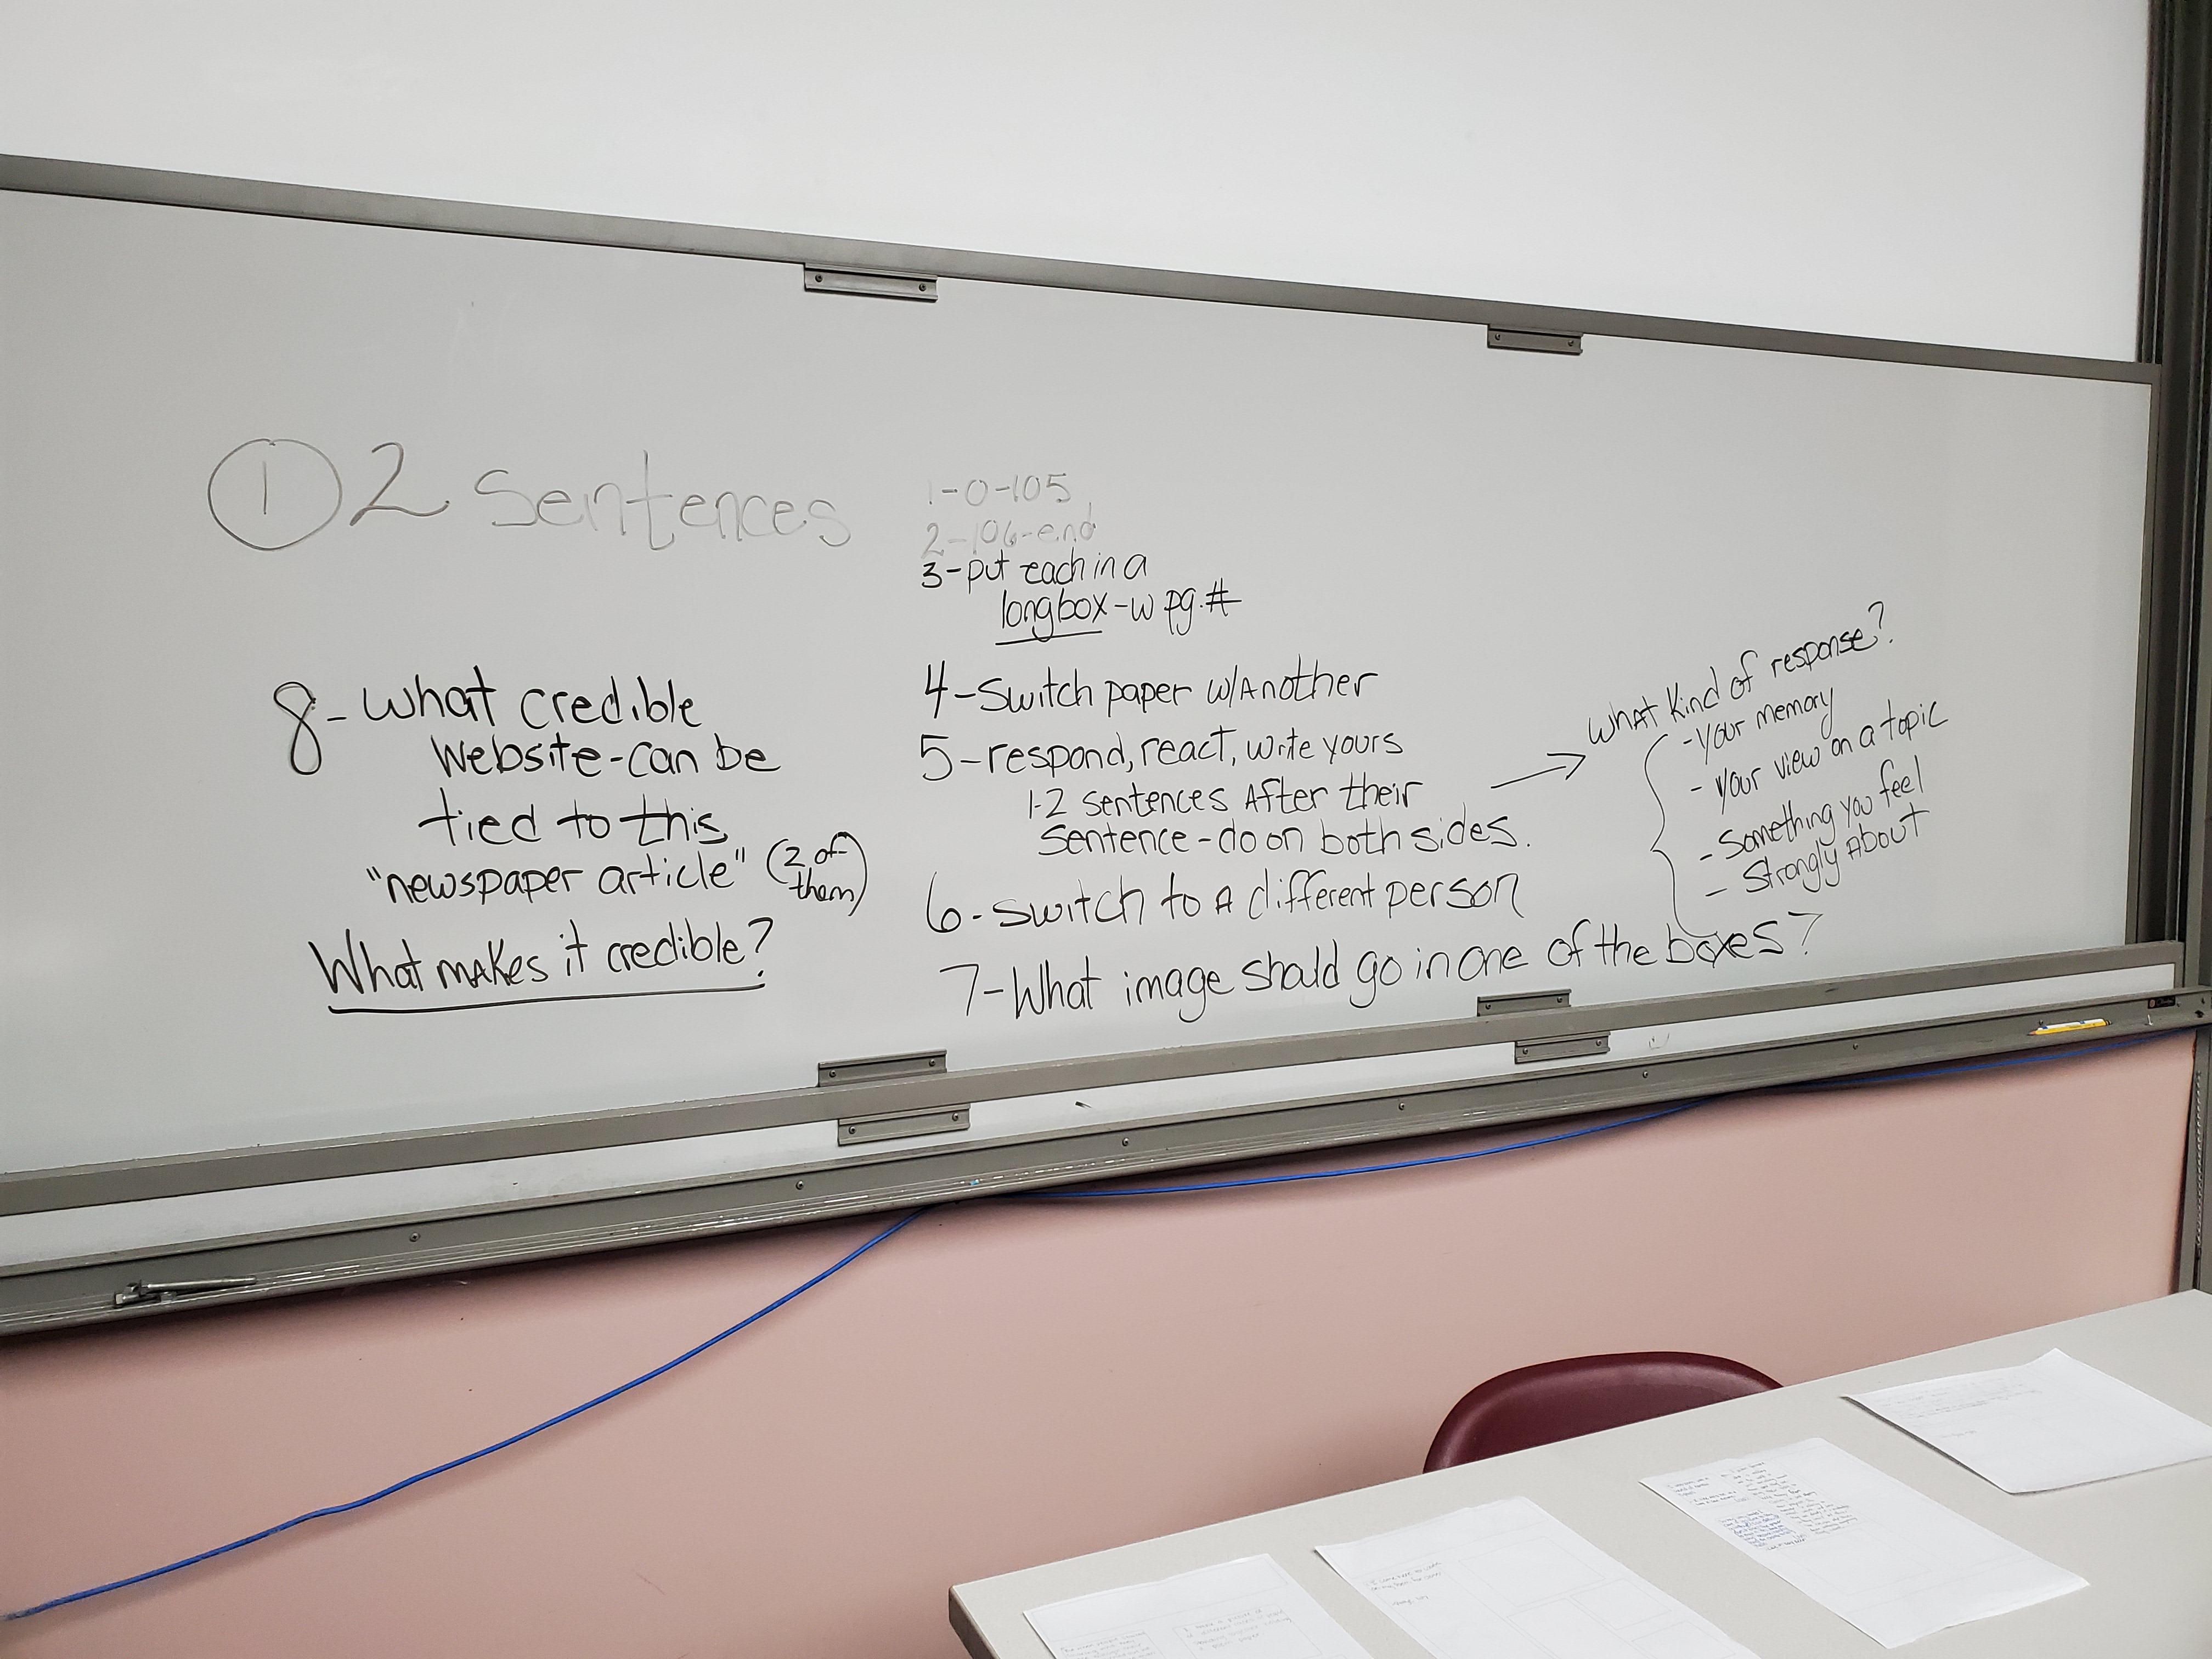 ① 2 Sentences
1-0-105
2-106-end
3-put each in a
longbox-w pg.#
4-Switch paper w/Another
5-respond, react, write yours
1-2 sentences After their
sentence-do on both sides.
6-switch to A different person
7-What image should go in one of the boxes?
What Kind of response?
-your memory
-your view on a topic
-Something you feel
- Strongly About
8-What credible
Website-can be
tied to this
"newspaper article" (2 of
them)
What makes it credible?